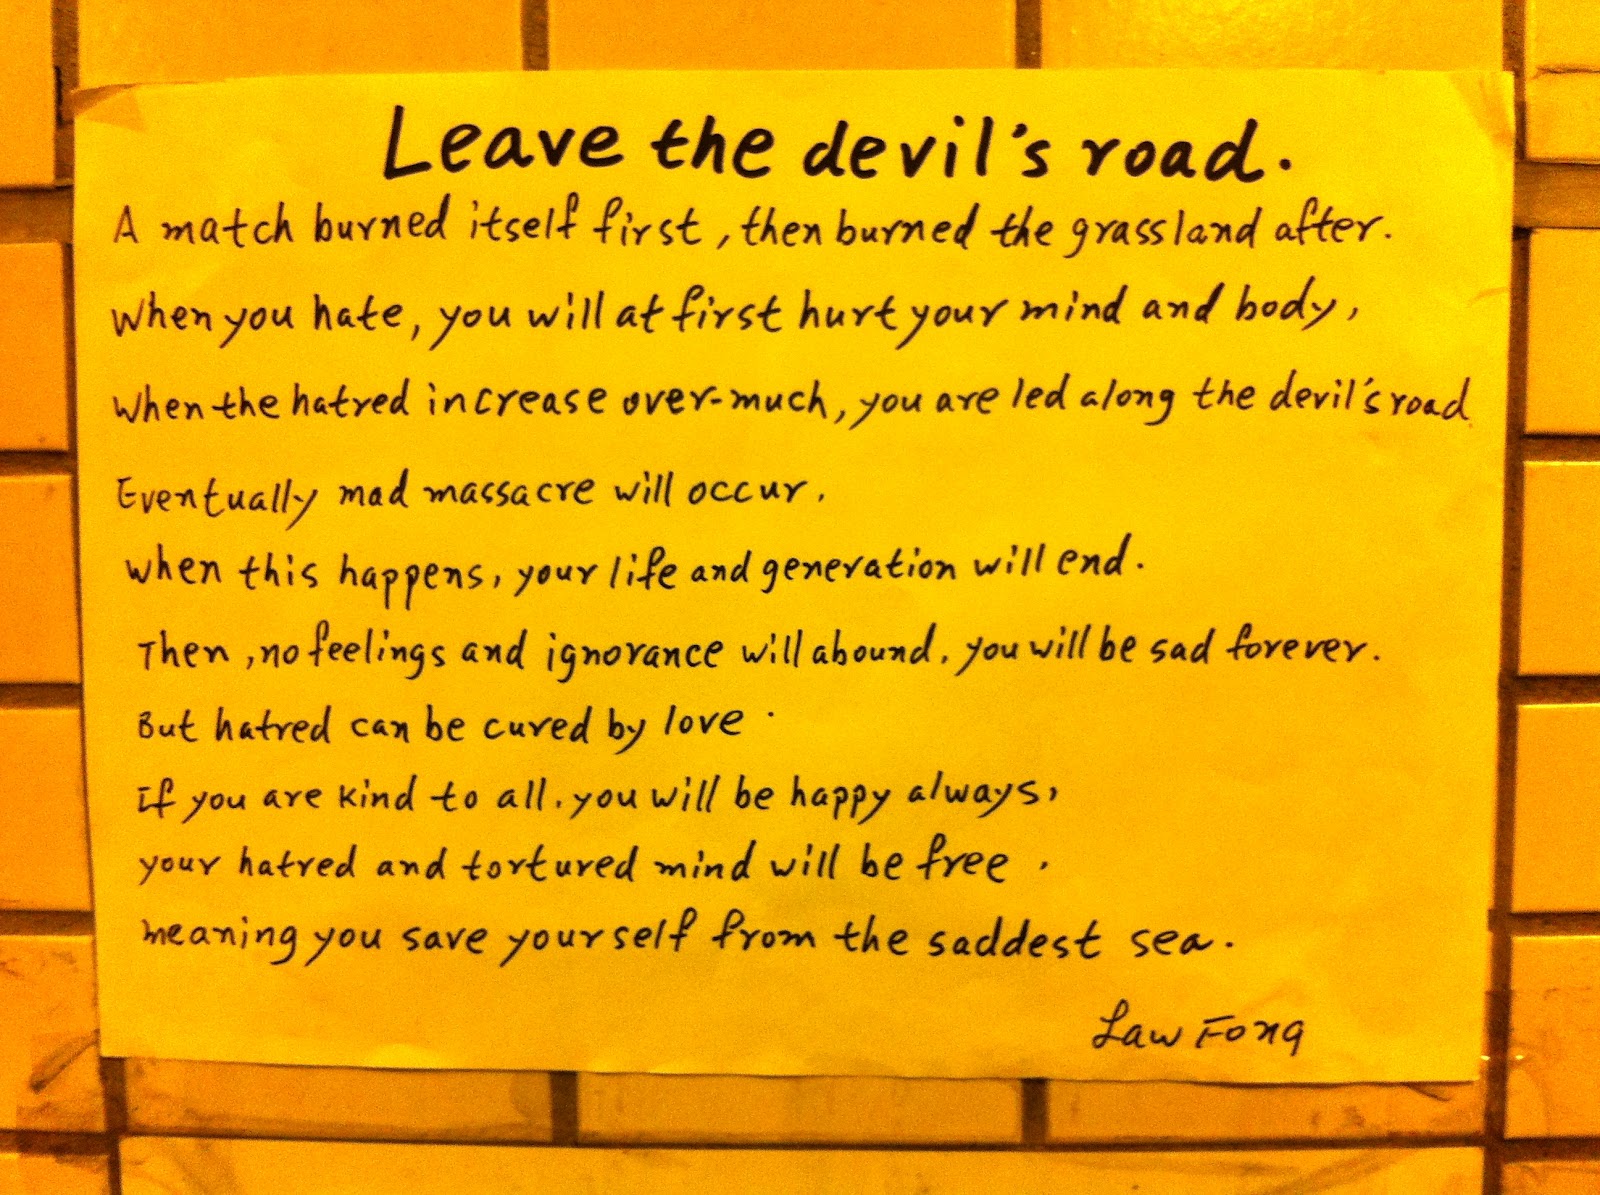 Leave the devil's road.
A match burned itself first, then burned the grassland after.
When you hate, you will at first hurt your mind and body,
When the hatred increase over-much, you are led along the devil's road.
Eventually mad massacre will occur.
When this happens, your life and generation will end.
Then, no feelings and ignorance will abound, you will be sad forever.
But hatred can be cured by love.
If you are kind to all, you will be happy always,
your hatred and tortured mind will be free.
meaning you save yourself from the saddest sea.
Law Fong